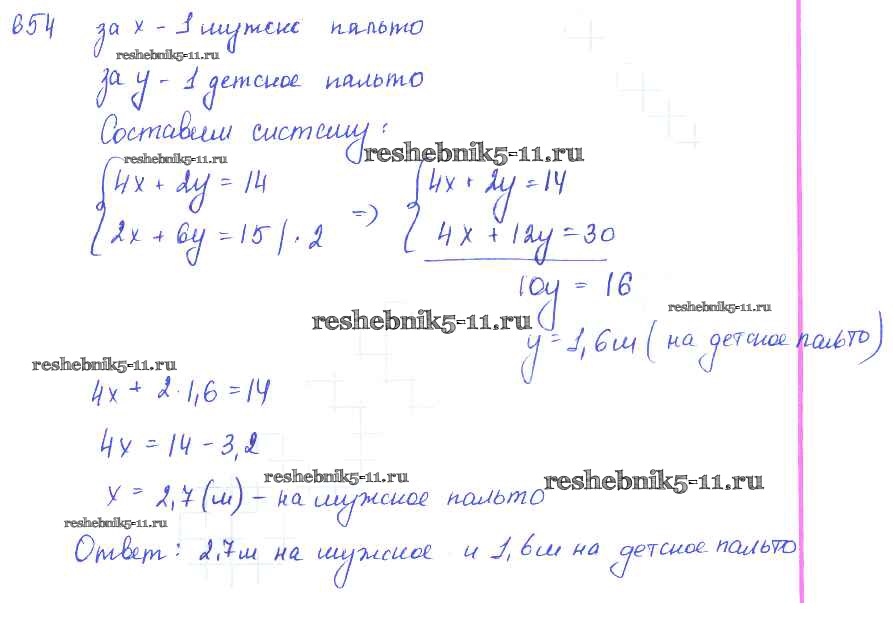 654 за x - 1 мужске пальто
reshebnik5-11.ru
за y - 1 детское пальто
Составим систему:
reshebnik5-11.ru
reshebnik5-11.ru
{4x + 2y = 14
{2x + 6y = 15 | · 2
=>
{4x + 2y = 14
{4x + 12y = 30
10y = 16
reshebnik5-11.ru
reshebnik5-11.ru
y = 1,6 м (на детское пальто)
reshebnik5-11.ru
4x + 2 · 1,6 = 14
4x = 14 - 3,2
reshebnik5-11.ru
reshebnik5-11.ru
x = 2,7 (м) - на мужское пальто
reshebnik5-11.ru
Ответ: 2,7м на мужское и 1,6м на детское пальто